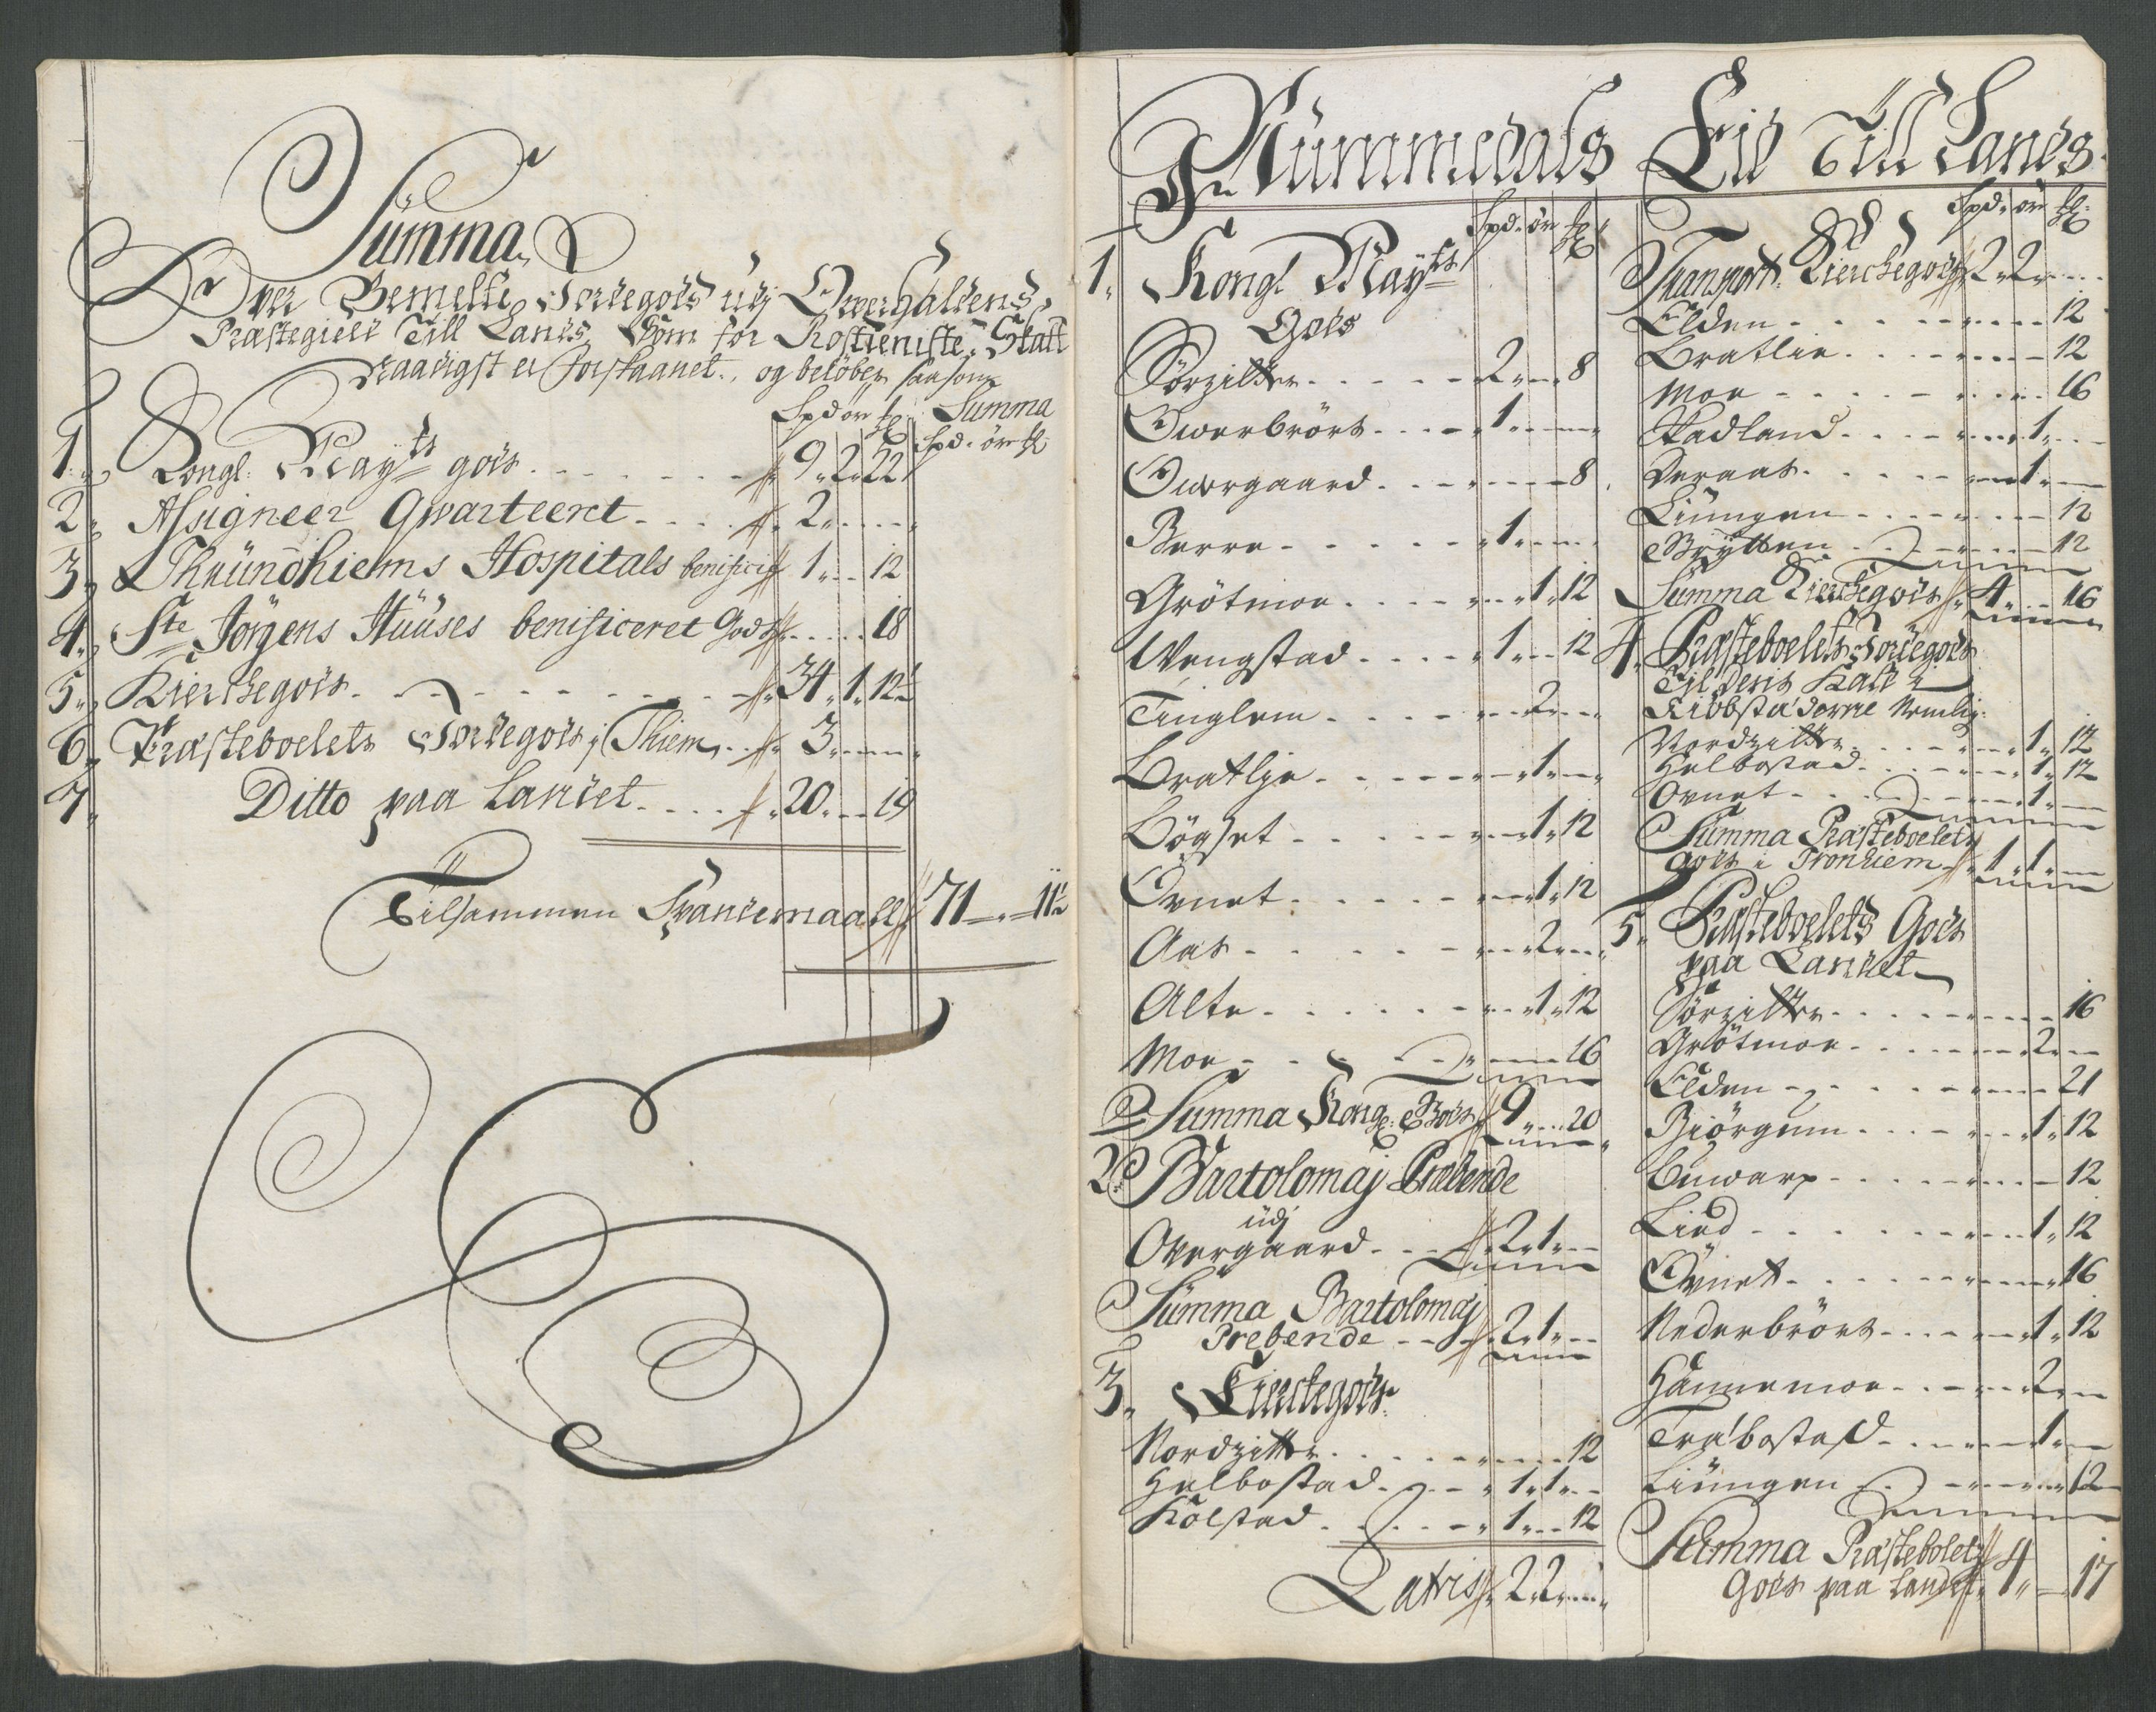 Summa
Over Bemelte Jordegods udj Owerhaldens
Præstegield Till Lands, Som for Rostieniste Skatt
Naadigst er forskaanet, og beløber saasom
Spd ør £ Summa
Spd. ør £
1. Kongl: Mayts gods 9 2 22
2. Assigneer Qwarteeret 2
3. Thrundhiems Hospitals benificij 1 12
4. Ste Jörgens Huuses benificeret Gods 18
5. Kierchegods 34 1 12½
6. Præsteboelets Jordegods, i Thiem 3
7. Ditto paa Landet 20 19
Tilsammen Spandemaall 71 11½
Nummedals Eid Till Lands.
Spd. ør £
1. Kongl Mayts
Gods
Sörzittr 2 8
Owerbrörs 1
Owergaard 8
Berre 1
Grötmoe 1 12
Wengstad 1 12
Tinglem 2
Bratlje 1
Högset 1 12
Ovnet 1 12
Aas 2
Alte 1 12
Moe 16
Summa Kong: Gods 9 20
2. Bartolomaj Præbende
udj
Overgaard 2 1
Summa Bartolomaj
Prebende 2 1
3. Kierckegods
Nordzittr 12
Helbostad 1 1
Kolstad 1 12
Latris 2 2
Spd. ør £
Transport Kierchegods 2 2
Elden 12
Bratlie 12
Moe 16
Stadland 1
Deraas 1
Liungen 12
Brytten 12
Summa Kierchegods 4 16
4. Præsteboelets Jordegods
Til dens Kald i
Kiobstæderne Nemlig:
Nordzittr 1 12
Helbostad 1 12
Ovnet 1
Summa Præsteboelets
gods i Tronhiem 1 1
5. Præsteboelets Gods
paa Landet
Sörzittr 16
Grötmoe 2
Elden 21
Biörgum 1 12
12
Lied 1 12
Ovnet 16
Nederbrörs 1 12
Hannemoe 2
Trabostad 1
Liungen 12
Summa Præstebolets
Gods paa Landet 4 17